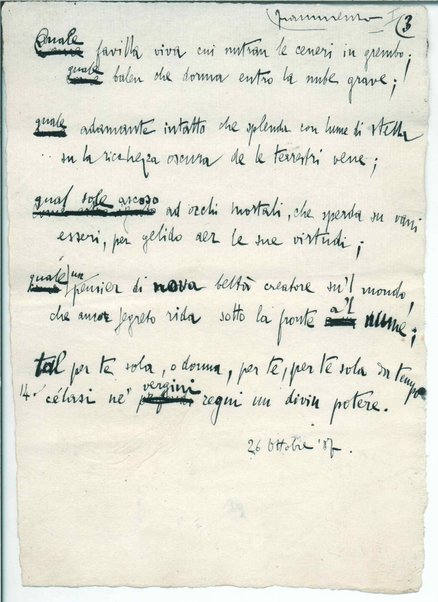 frammento I 3
Quale favilla viva cui nutran le ceneri in grembo;
quale balen che dorma entro la nube grave;
quale adamante intatto che splenda con lume di stella
su la ricchezza oscura de le terrestri vene;
qual sole ascoso ad occhi mortali, che sperda su vani
esseri, per gelido aer le sue virtudi;
quale un pensier di nova beltà creatore su 'l mondo,
che amor segreto rida sotto la fronte a 'l nume;
tal per te sola, o donna, per te, per te sola da tempo
14 cèlasi ne' vergini regni un divin potere.
26 Ottobre '87.